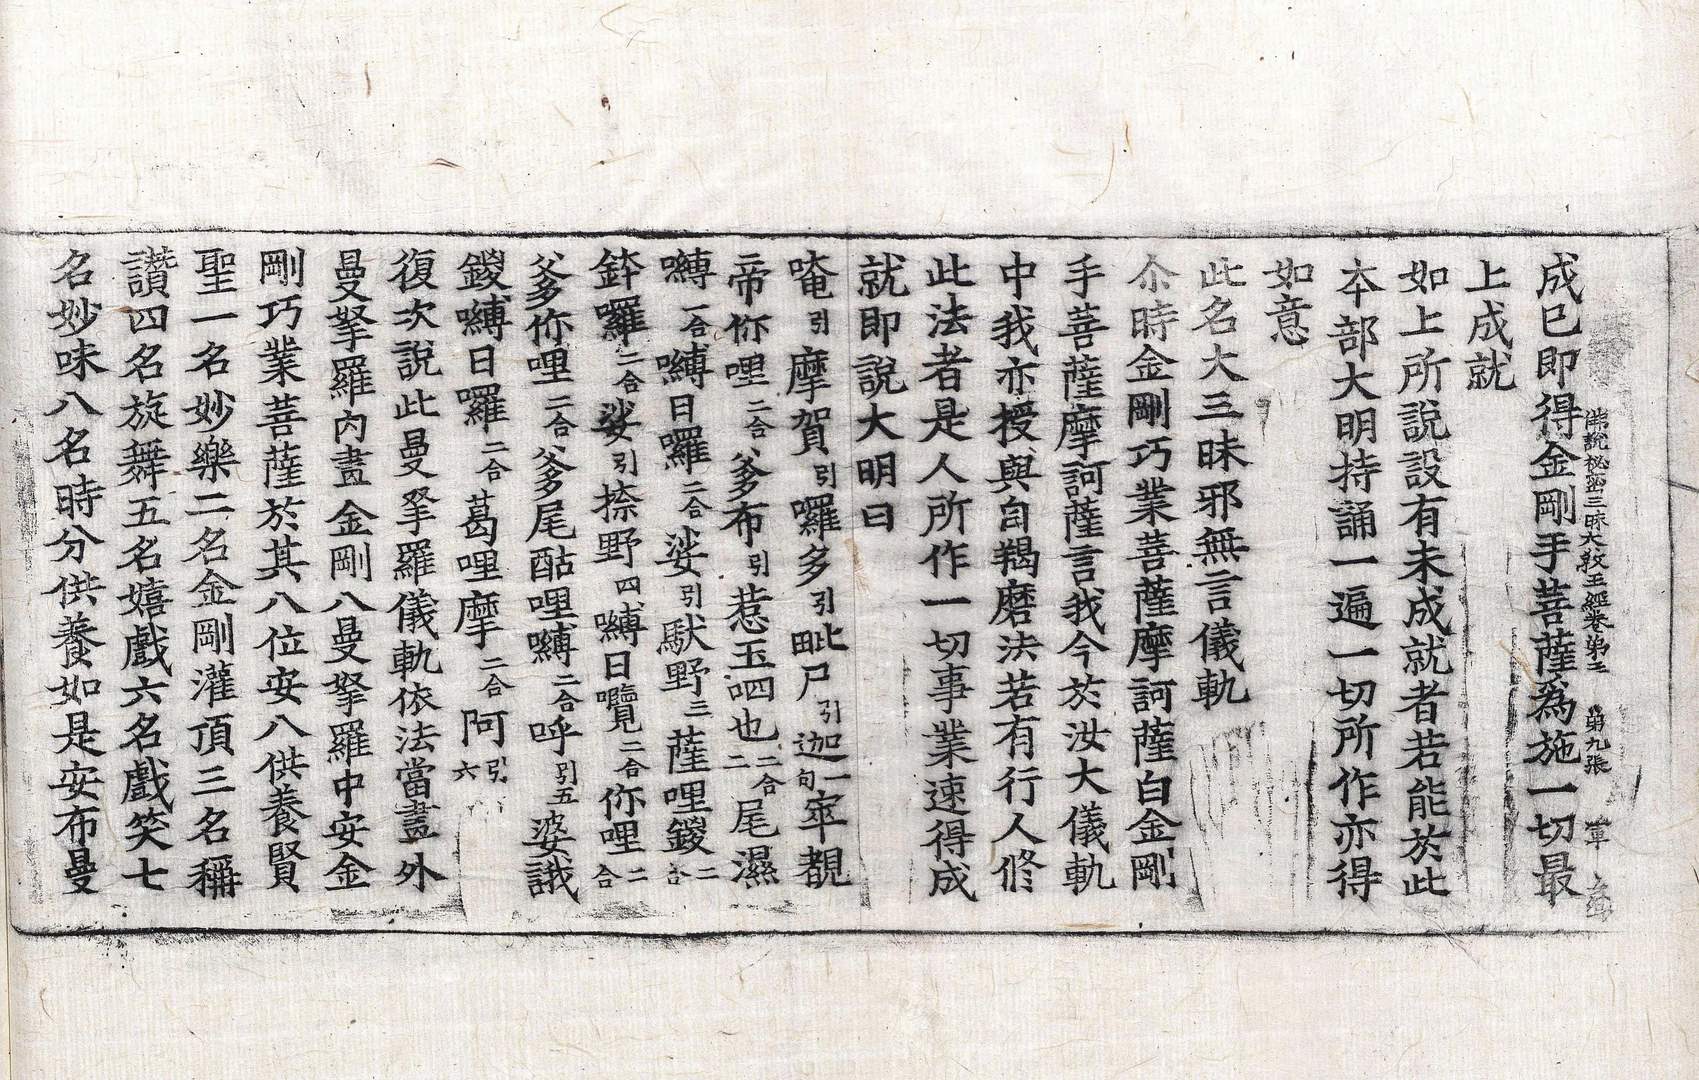 佛說秘密三昧大教王經卷第三 第九張 軍
成已即得金剛手菩薩爲施一切最
上成就
如上所說設有未成就者若能於此
本部大明持誦一遍一切所作亦得
如意
此名大三昧邪無言儀軌
尒時金剛巧業菩薩摩訶薩白金剛
手菩薩摩訶薩言我今於汝大儀軌
中我亦授與自羯磨法若有行人修
此法者是人所作一切事業速得成
就即說大明曰
唵引摩賀引囉多引毗尸引迦一句窣覩
二帝你哩二合爹布引惹玉呬也二合二尾濕
嚩二合嚩日囉二合娑引馱野三薩哩鑁二合
鉢囉二合娑引捺野四嚩日囕二合你哩二合
爹你哩二合爹尾酤哩嚩二合呼引五婆誐
鑁嚩日囉二合葛哩摩二合阿引六
復次說此曼拏羅儀軌依法當畫外
曼拏羅內畫金剛八曼拏羅中安金
剛巧業菩薩於其八位安八供養賢
聖一名妙樂二名金剛灌頂三名稱
讚四名旋舞五名嬉戲六名戲笑七
名妙味八名時分供養如是安布曼